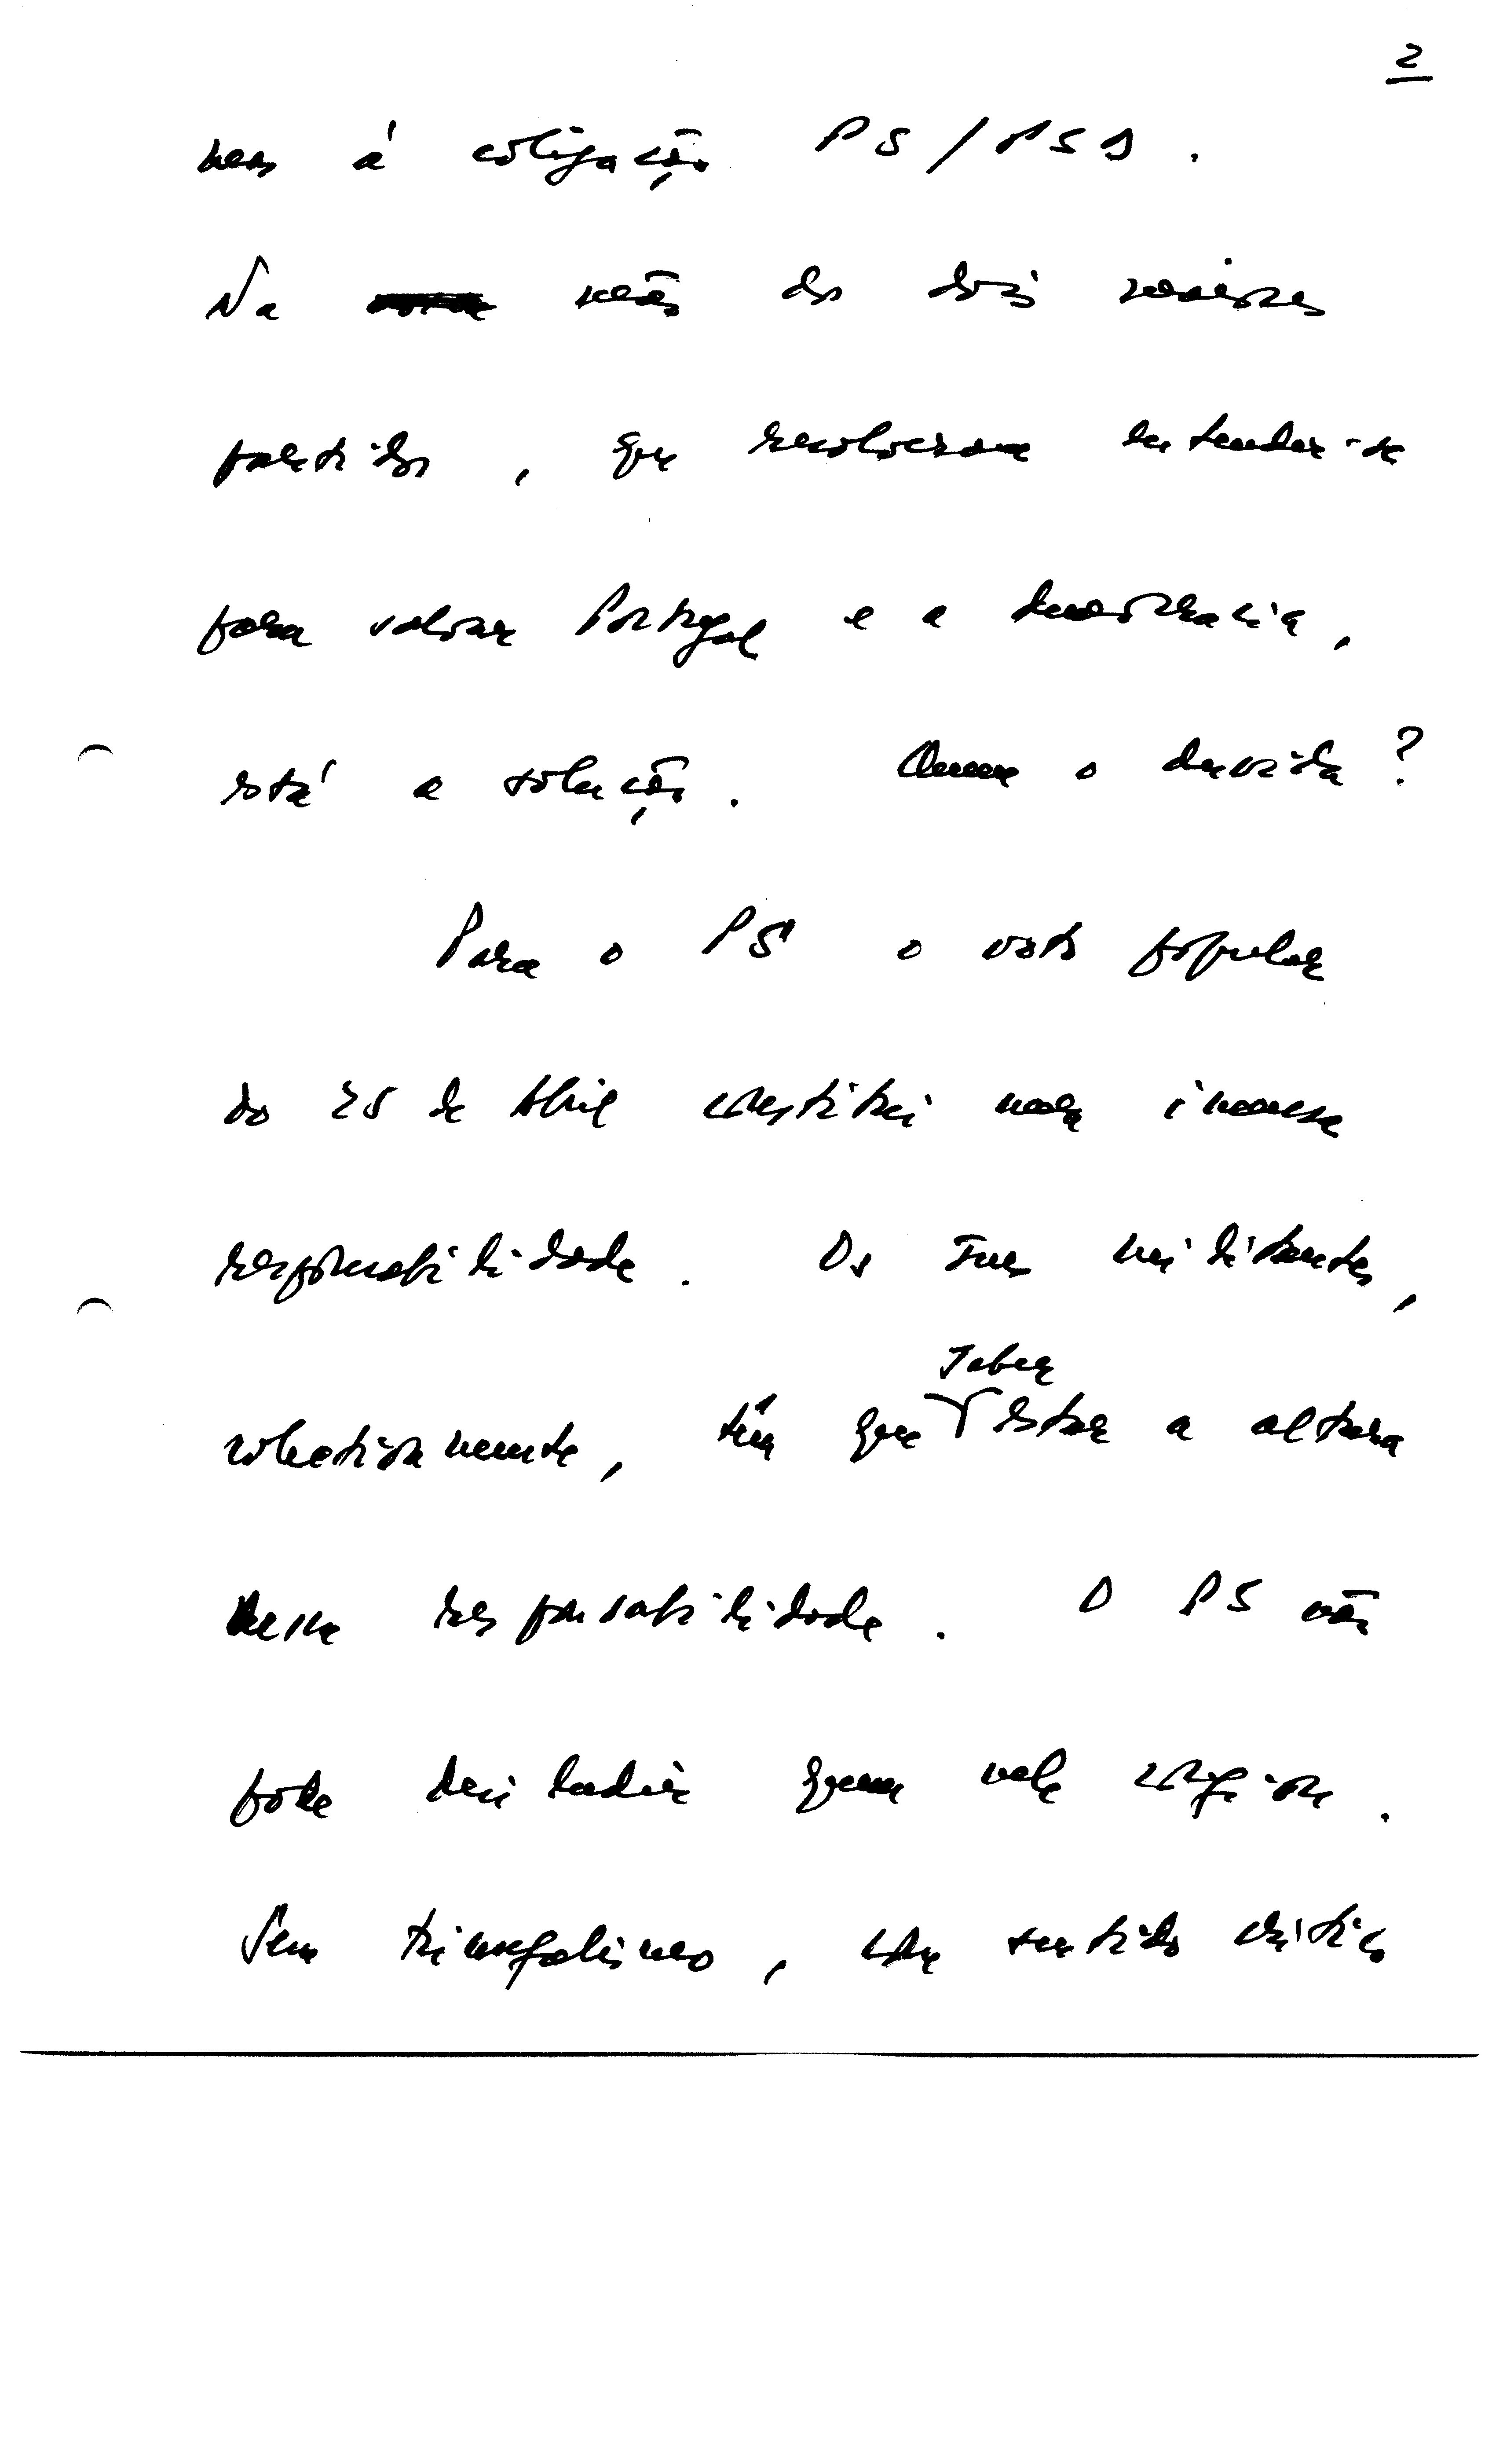 2
nem à coligação PS/PSD.
Na mão dos dois maiores
partidos, que resolveram entender-se
para salvar Portugal e a democracia,
está a solução. Quem o duvida?
Para o PS o voto popular
do 25 de Abril constitui uma imensa
responsabilidade. Os seus militantes,
colectivamente, têm que saber estar a altura
dessa responsabilidade. O PS não
pode desiludir quem nele confiou.
Sem triunfalismo, com sentido crítico